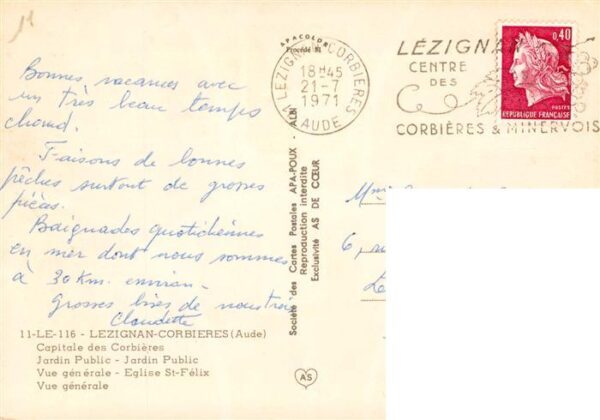 Bonnes vacances avec
un très beau temps
chaud.
Faisons de bonnes
pêches surtout de grosses
pièces.
Baignades quotidiennes
en mer dont nous sommes
à 30 Km. environ-
Grosses bises de nous trois
Claudette
11-LE-116 - LEZIGNAN-CORBIERES (Aude)
Capitale des Corbières
Jardin Public - Jardin Public
Vue générale - Eglise St-Félix
Vue générale
APACOLOR
Procédé SI
Société des Cartes Postales APA-POUX - ALBI
Reproduction interdite
Exclusivité AS DE CŒUR
AS
LEZIGNAN-CORBIERES
18H45
21-7
1971
AUDE
LÉZIGNAN
CENTRE
DES
CORBIÈRES & MINERVOIS
0,40
POSTES
REPUBLIQUE FRANÇAISE
Mme
6